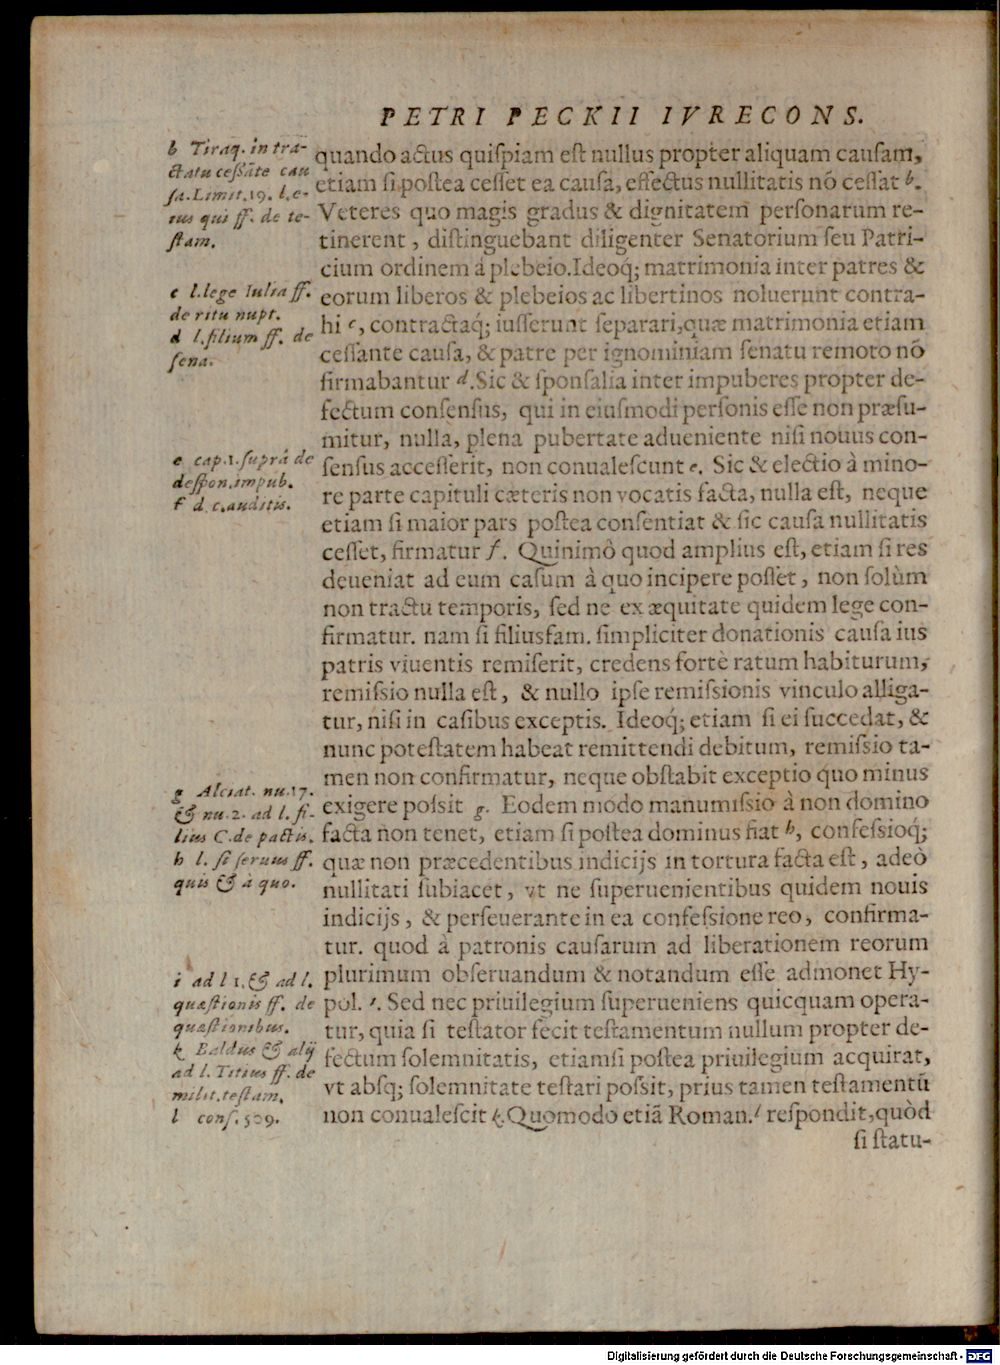 PETRI PECKII IVRECONS.
quando actus quiſpiam eſt nullus propter aliquam cauſam,
etiam ſi poſtea ceſſet ea cauſa, effectus nullitatis nõ ceſſat b.
Veteres quo magis gradus & dignitatem perſonarum re-
tinerent, diſtinguebant diligenter Senatorium ſeu Patri-
cium ordinem à plebeio. Ideoq́; matrimonia inter patres &
eorum liberos & plebeios ac libertinos noluerunt contra-
hi c, contractaq́; iuſſerunt ſeparari, quæ matrimonia etiam
ceſſante cauſa, & patre per ignominiam ſenatu remoto nõ
firmabantur d. Sic & ſponſalia inter impuberes propter de-
fectum conſenſus, qui in eiuſmodi perſonis eſſe non præſu-
mitur, nulla, plena pubertate adueniente niſi nouus con-
ſenſus acceſſerit, non conualeſcunt e. Sic & electio à mino-
re parte capituli cæteris non vocatis facta, nulla eſt, neque
etiam ſi maior pars poſtea conſentiat & ſic cauſa nullitatis
ceſſet, firmatur f. Quinimò quod amplius eſt, etiam ſi res
deueniat ad eum caſum à quo incipere poſſet, non ſolùm
non tractu temporis, ſed ne ex æquitate quidem lege con-
firmatur. nam ſi filiusfam. ſimpliciter donationis cauſa ius
patris viuentis remiſerit, credens fortè ratum habiturum,
remiſsio nulla eſt, & nullo ipſe remiſsionis vinculo alliga-
tur, niſi in caſibus exceptis. Ideoq́; etiam ſi ei ſuccedat, &
nunc poteſtatem habeat remittendi debitum, remiſsio ta-
men non confirmatur, neque obſtabit exceptio quo minus
exigere poſsit g. Eodem modo manumiſsio à non domino
facta non tenet, etiam ſi poſtea dominus fiat h, confeſsioq́;
quæ non præcedentibus indicijs in tortura facta eſt, adeò
nullitati ſubiacet, vt ne ſuperuenientibus quidem nouis
indicijs, & perſeuerante in ea confeſsione reo, confirma-
tur. quod à patronis cauſarum ad liberationem reorum
plurimum obſeruandum & notandum eſſe admonet Hy-
pol. i. Sed nec priuilegium ſuperueniens quicquam opera-
tur, quia ſi teſtator fecit teſtamentum nullum propter de-
fectum ſolemnitatis, etiamſi poſtea priuilegium acquirat,
vt abſq; ſolemnitate teſtari poſsit, prius tamen teſtamentũ
non conualeſcit k. Quomodo etiã Roman. l reſpondit, quòd
ſi ſtatu-
b Tiraq. in tra-
ctatu ceſſãte cau
ſa. Limit. 19. l. e-
ius qui ff. de te-
ſtam.
c l. lege Iulia ff.
de ritu nupt.
d l. filium ff. de
ſena.
e cap. 1. ſuprà de
deſpon. impub.
f d. c. auditis.
g Alciat. nu. 17.
& nu. 2. ad l. fi-
lius C. de pactis.
h l. ſi ſeruus ff.
quis & à quo.
i ad l 1. & ad l.
quæſtionis ff. de
quæſtionibus.
k Baldus & alij
ad l. Titius ff. de
milit. teſtam.
l conſ. 509.
Digitalisierung gefördert durch die Deutsche Forschungsgemeinschaft - DFG